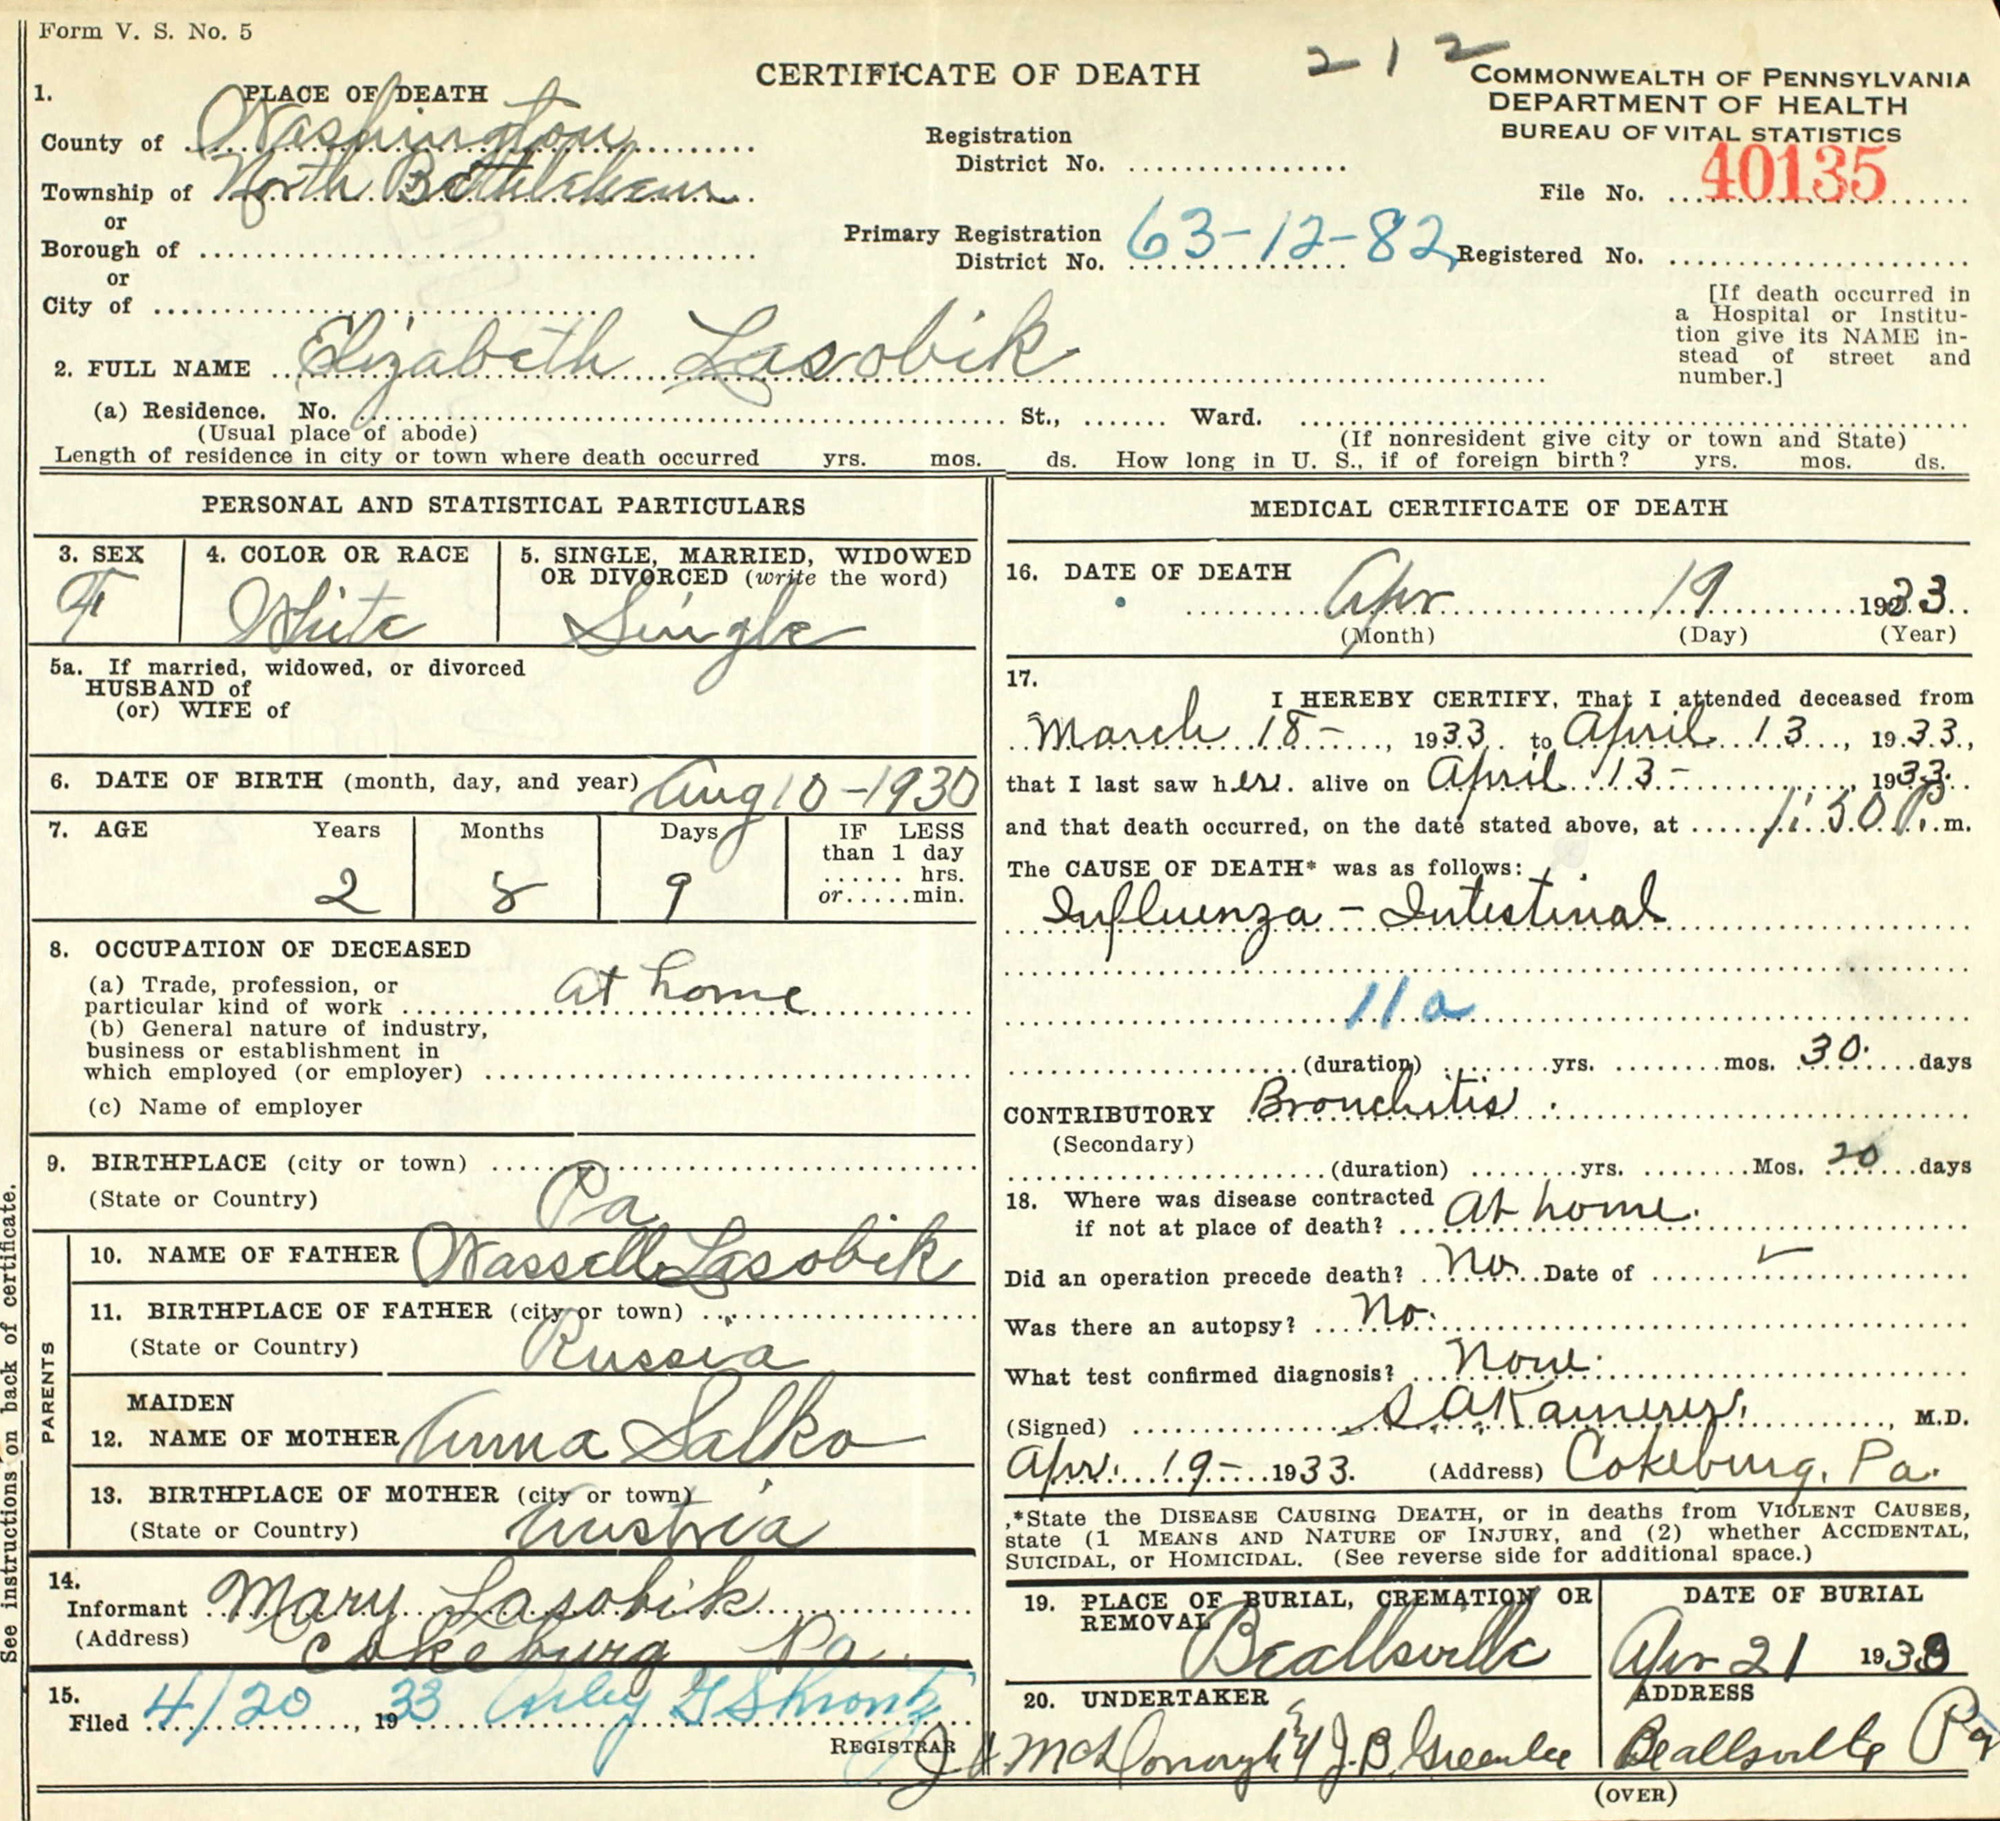 Form V. S. No. 5
212
CERTIFICATE OF DEATH
COMMONWEALTH OF PENNSYLVANIA
DEPARTMENT OF HEALTH
BUREAU OF VITAL STATISTICS
1. PLACE OF DEATH
County of Washington
Township of North Bethlehem
or
Borough of
or
City of
Registration
District No.
Primary Registration
District No. 63-12-82
File No. 40135
Registered No.
[If death occurred in
a Hospital or Institu-
tion give its NAME in-
stead of street and
number.]
2. FULL NAME Elizabeth Lasobik
(a) Residence. No. St., Ward.
(Usual place of abode) (If nonresident give city or town and State)
Length of residence in city or town where death occurred yrs. mos. ds. How long in U. S., if of foreign birth? yrs. mos. ds.
PERSONAL AND STATISTICAL PARTICULARS
3. SEX
F
4. COLOR OR RACE
White
5. SINGLE, MARRIED, WIDOWED
OR DIVORCED (write the word)
Single
5a. If married, widowed, or divorced
HUSBAND of
(or) WIFE of
6. DATE OF BIRTH (month, day, and year) Aug 10-1930
7. AGE Years Months Days
2 8 9
IF LESS
than 1 day
hrs.
or min.
8. OCCUPATION OF DECEASED
(a) Trade, profession, or
particular kind of work at home
(b) General nature of industry,
business or establishment in
which employed (or employer)
(c) Name of employer
9. BIRTHPLACE (city or town)
(State or Country) Pa
PARENTS
10. NAME OF FATHER Wassell Lasobik
11. BIRTHPLACE OF FATHER (city or town)
(State or Country) Russia
MAIDEN
12. NAME OF MOTHER Anna Salko
13. BIRTHPLACE OF MOTHER (city or town)
(State or Country) Austria
14.
Informant Mary Lasobik
(Address) Cokeburg Pa.
15.
Filed 4/20, 1933 G Shrontz
REGISTRAR
See instructions on back of certificate.
MEDICAL CERTIFICATE OF DEATH
16. DATE OF DEATH
Apr 19 1933
(Month) (Day) (Year)
17.
I HEREBY CERTIFY, That I attended deceased from
March 18-, 1933. to April 13, 1933,
that I last saw her alive on April 13-, 1933.
and that death occurred, on the date stated above, at 1:30 P. m.
The CAUSE OF DEATH* was as follows:
Influenza - Intestinal
11a
(duration) yrs. mos. 30 days
CONTRIBUTORY Bronchitis.
(Secondary)
(duration) yrs. Mos. 20 days
18. Where was disease contracted
if not at place of death? At home.
Did an operation precede death? No. Date of
Was there an autopsy? No.
What test confirmed diagnosis? None.
(Signed) S A Kamerer, M.D.
Apr. 19- 1933. (Address) Cokeburg, Pa.
*State the DISEASE CAUSING DEATH, or in deaths from VIOLENT CAUSES,
state (1 MEANS AND NATURE OF INJURY, and (2) whether ACCIDENTAL,
SUICIDAL, or HOMICIDAL. (See reverse side for additional space.)
19. PLACE OF BURIAL, CREMATION OR
REMOVAL
Beallsville
DATE OF BURIAL
Apr 21 1933
20. UNDERTAKER
J H McDonough & J.B. Greenlee
ADDRESS
Beallsville Pa
(OVER)